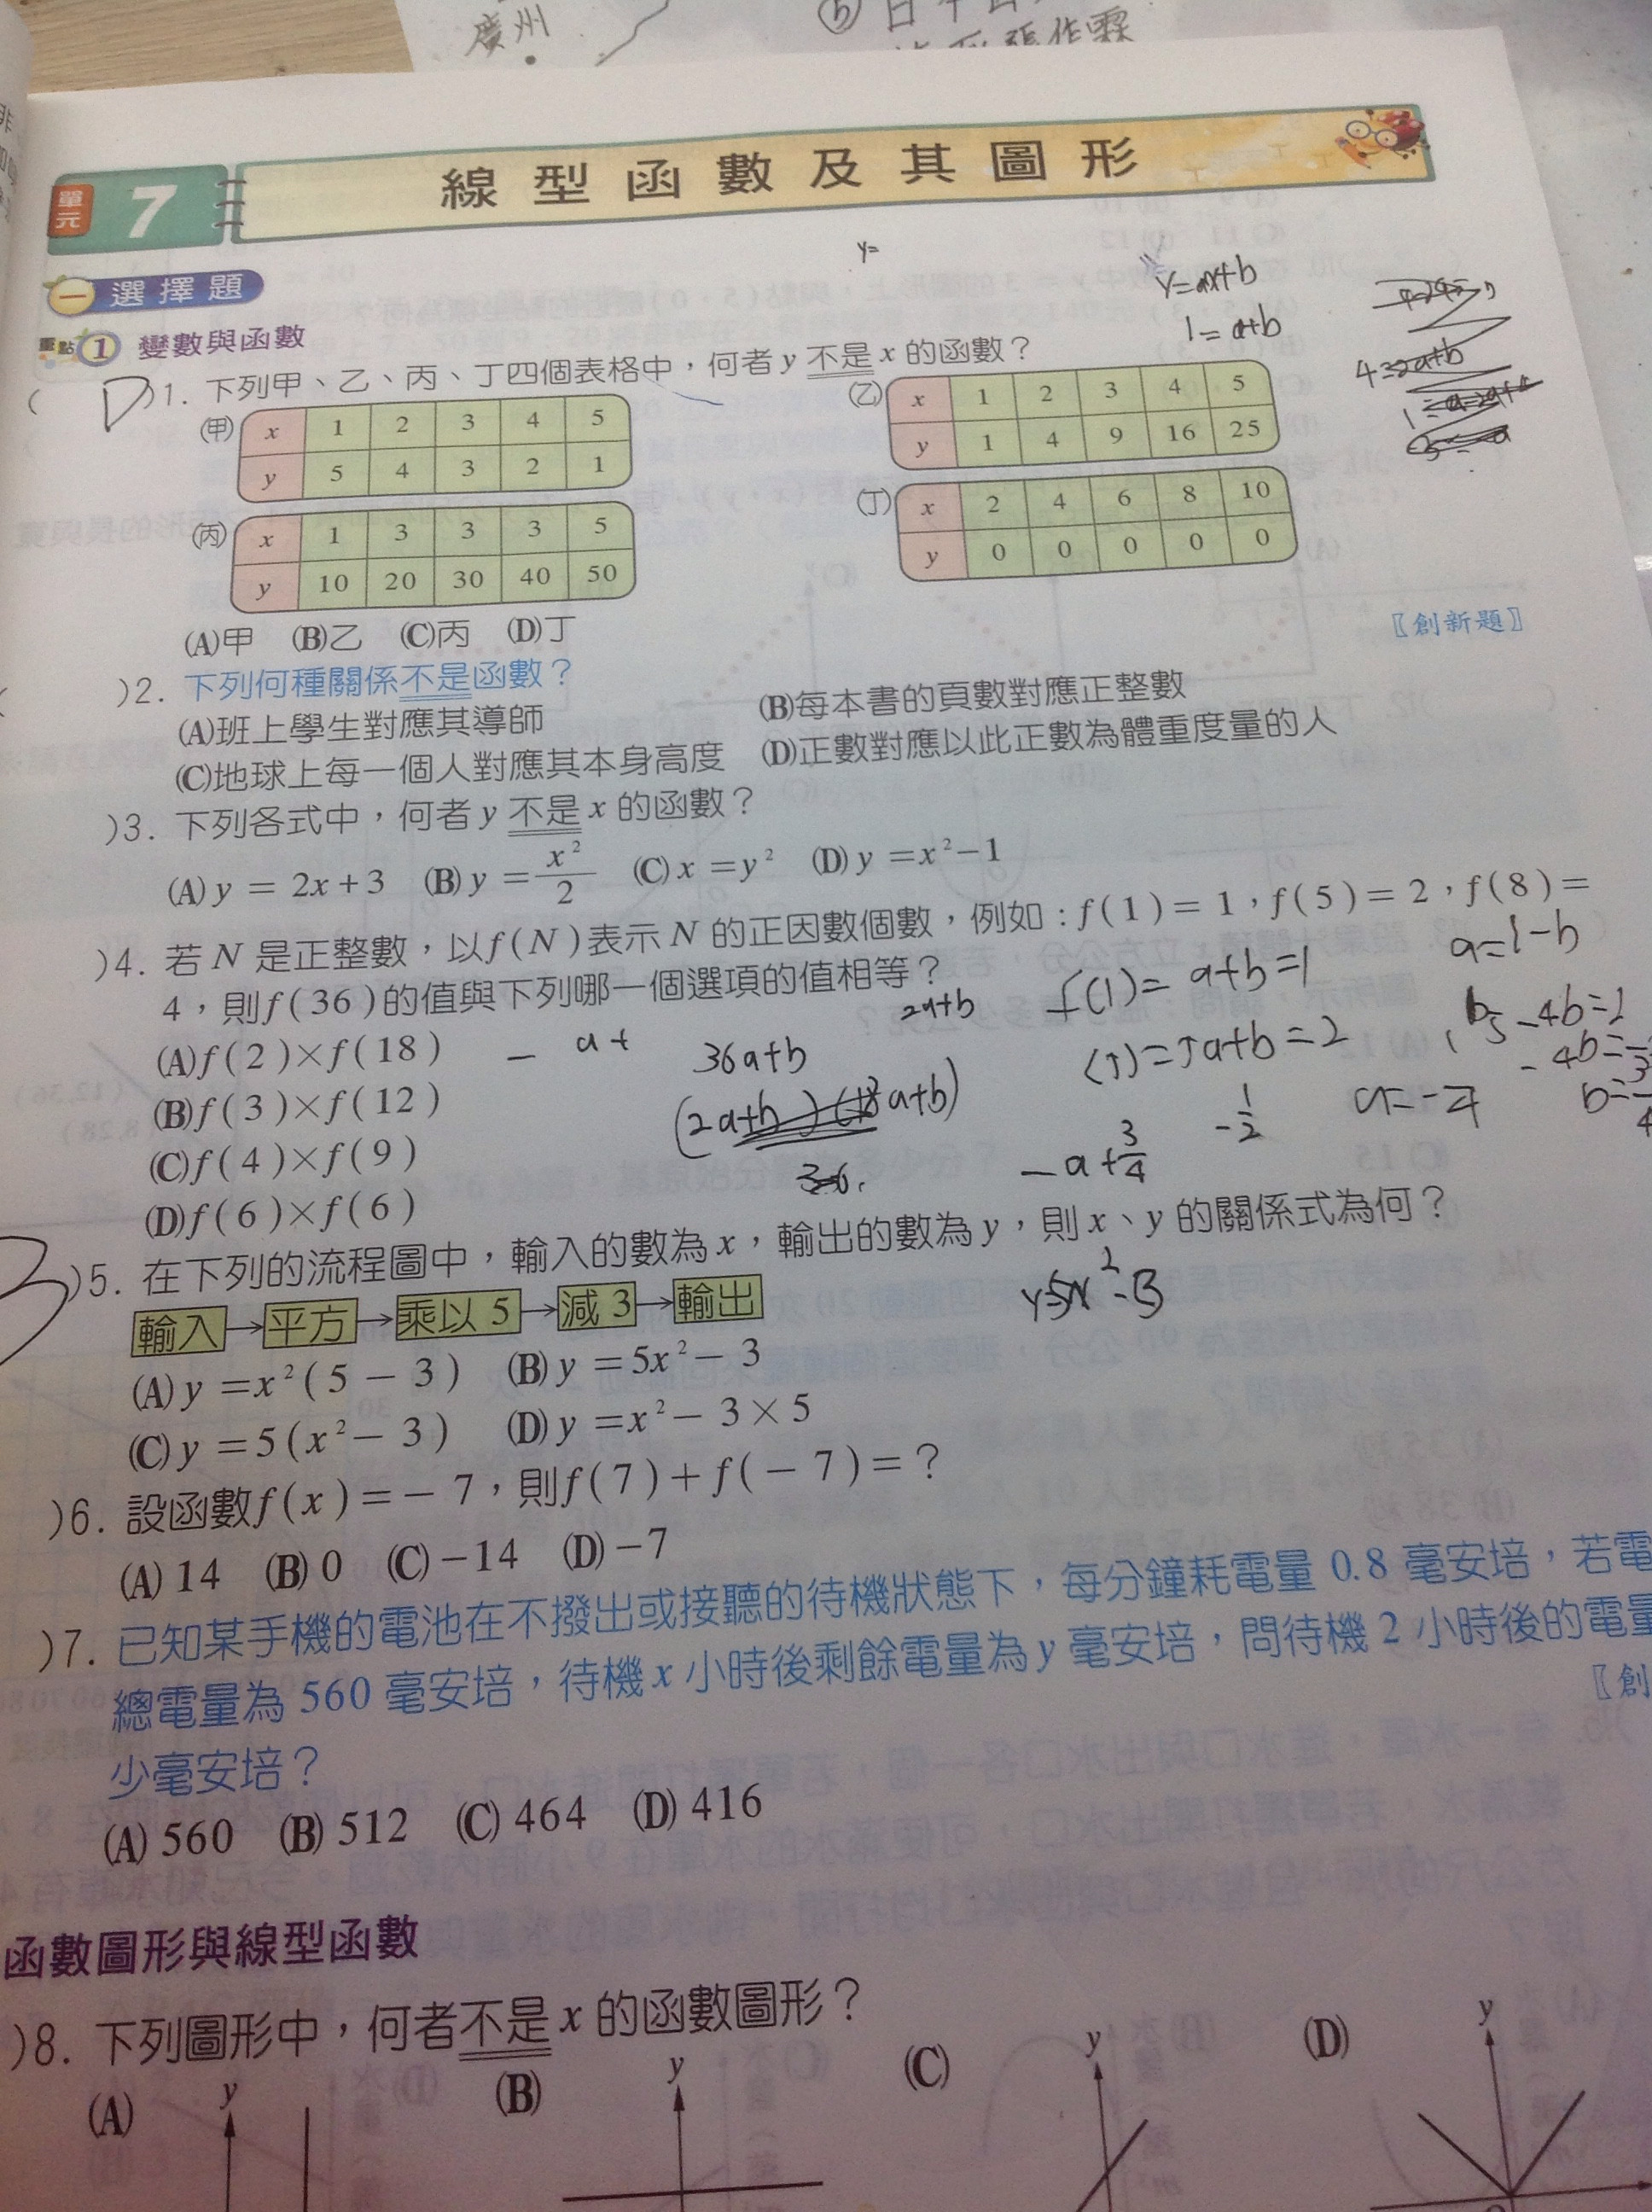 廣州
單元 7 線型函數及其圖形
一 選擇題
y=
y=ax+b
重點 1 變數與函數
1=a+b
4=2a+b
D )1. 下列甲、乙、丙、丁四個表格中，何者 y 不是 x 的函數？
(甲) x 1 2 3 4 5
y 5 4 3 2 1
(乙) x 1 2 3 4 5
y 1 4 9 16 25
(丙) x 1 3 3 3 5
y 10 20 30 40 50
(丁) x 2 4 6 8 10
y 0 0 0 0 0
(A)甲 (B)乙 (C)丙 (D)丁
〖創新題〗
)2. 下列何種關係不是函數？
(A)班上學生對應其導師 (B)每本書的頁數對應正整數
(C)地球上每一個人對應其本身高度 (D)正數對應以此正數為體重度量的人
)3. 下列各式中，何者 y 不是 x 的函數？
(A) y = 2x+3 (B) y = x²/2 (C) x = y² (D) y = x²−1
)4. 若 N 是正整數，以 f(N) 表示 N 的正因數個數，例如：f(1) = 1，f(5) = 2，f(8) =
4，則 f(36) 的值與下列哪一個選項的值相等？
a=1-b
f(1)= a+b=1
2a+b
(A) f(2)×f(18)
36a+b
(B) f(3)×f(12)
(C) f(4)×f(9)
-a+3/4
-1/2
(D) f(6)×f(6)
)5. 在下列的流程圖中，輸入的數為 x，輸出的數為 y，則 x、y 的關係式為何？
輸入→平方→乘以 5→減 3→輸出
(A) y = x²(5 − 3) (B) y = 5x²− 3
(C) y = 5(x²− 3) (D) y = x²− 3×5
)6. 設函數 f(x) = − 7，則 f(7) + f(− 7) = ？
(A) 14 (B) 0 (C) −14 (D) −7
)7. 已知某手機的電池在不撥出或接聽的待機狀態下，每分鐘耗電量 0.8 毫安培，若電
總電量為 560 毫安培，待機 x 小時後剩餘電量為 y 毫安培，問待機 2 小時後的電量
少毫安培？
〖創
(A) 560 (B) 512 (C) 464 (D) 416
函數圖形與線型函數
)8. 下列圖形中，何者不是 x 的函數圖形？
(A) y (B) y (C) y (D) y